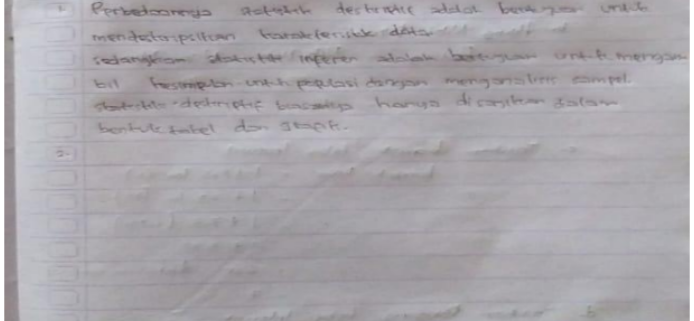 1. Perbedaannya statistik deskriptif adalah bertujuan untuk
mendeskripsikan karakteristik data
sedangkan statistik inferen adalah bertujuan untuk mengam
bil kesimpulan untuk populasi dengan menganalisis sampel.
statistik deskriptif biasanya hanya disajikan dalam
bentuk tabel dan grafik.
2.